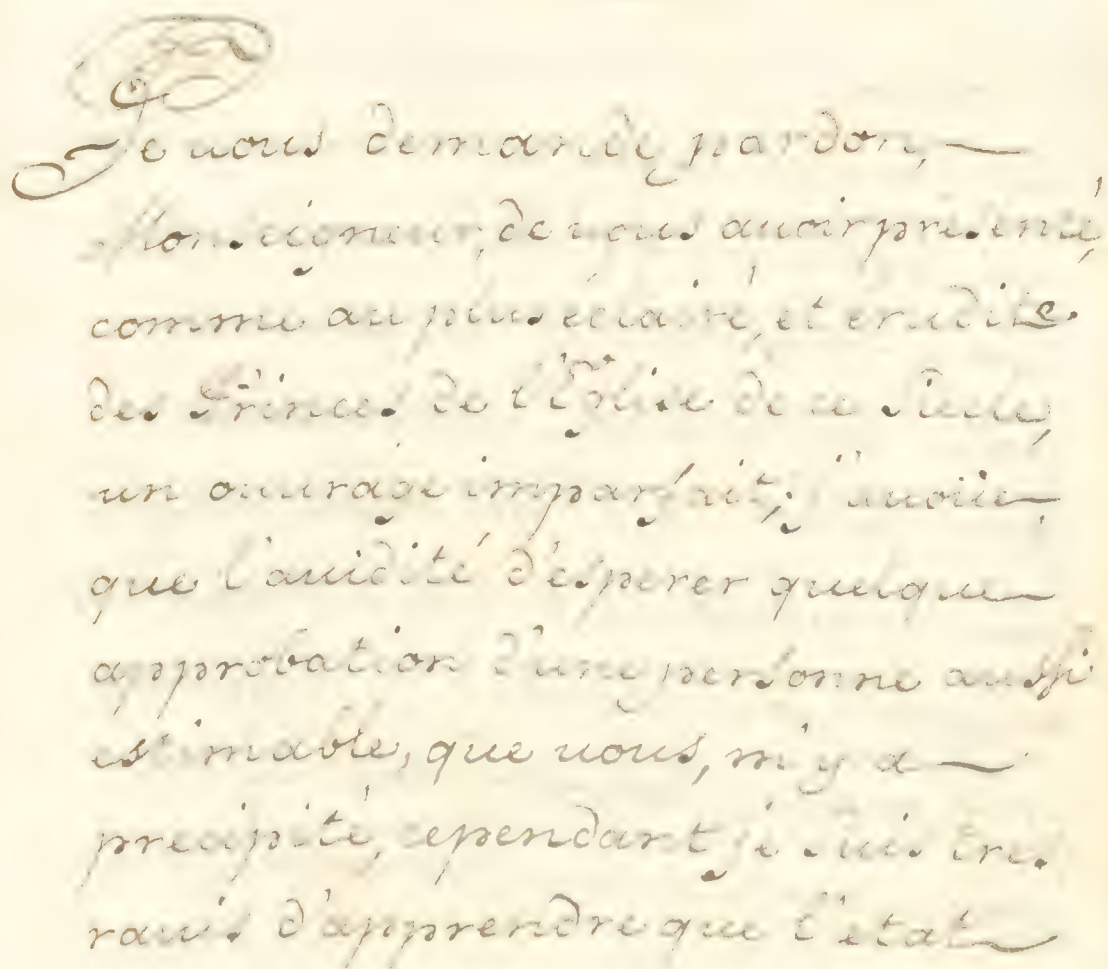 Je uous demande pardon,
Monseigneur, de uous auoir presenté,
comme au plus éclairé, et erudite
des Princes de l'Eglise de ce Siecle,
un ouurage imparfait, j'auoüe,
que l'auidité d'esperer quelque
approbation d'une personne aussi
estimable, que uous, m'y a
precipité, cependant je suis tres
rauis d'apprendre que l'état